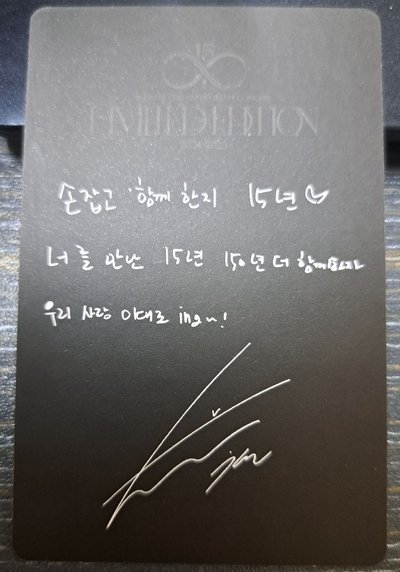 15
LIMITED EDITION
손잡고 함께 한지 15년♡
너를 만난 15년 150년 더 함께하자
우리 사랑 이대로 ing~!